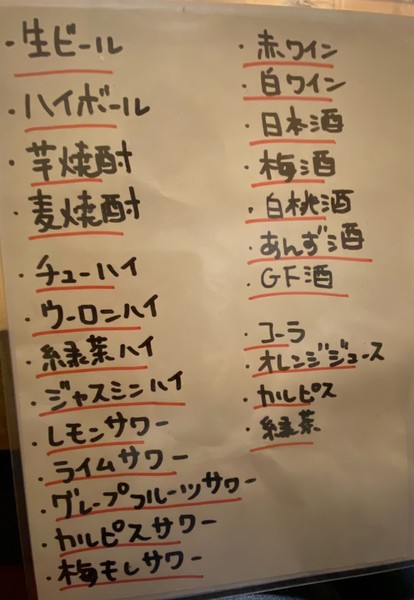 ・生ビール
・ハイボール
・芋焼酎
・麦焼酎
・チューハイ
・ウーロンハイ
・緑茶ハイ
・ジャスミンハイ
・レモンサワー
・ライムサワー
・グレープフルーツサワー
・カルピスサワー
・梅もしサワー
・赤ワイン
・白ワイン
・日本酒
・梅酒
・白桃酒
・あんず酒
・GF酒
・コーラ
・オレンジジュース
・カルピス
・緑茶